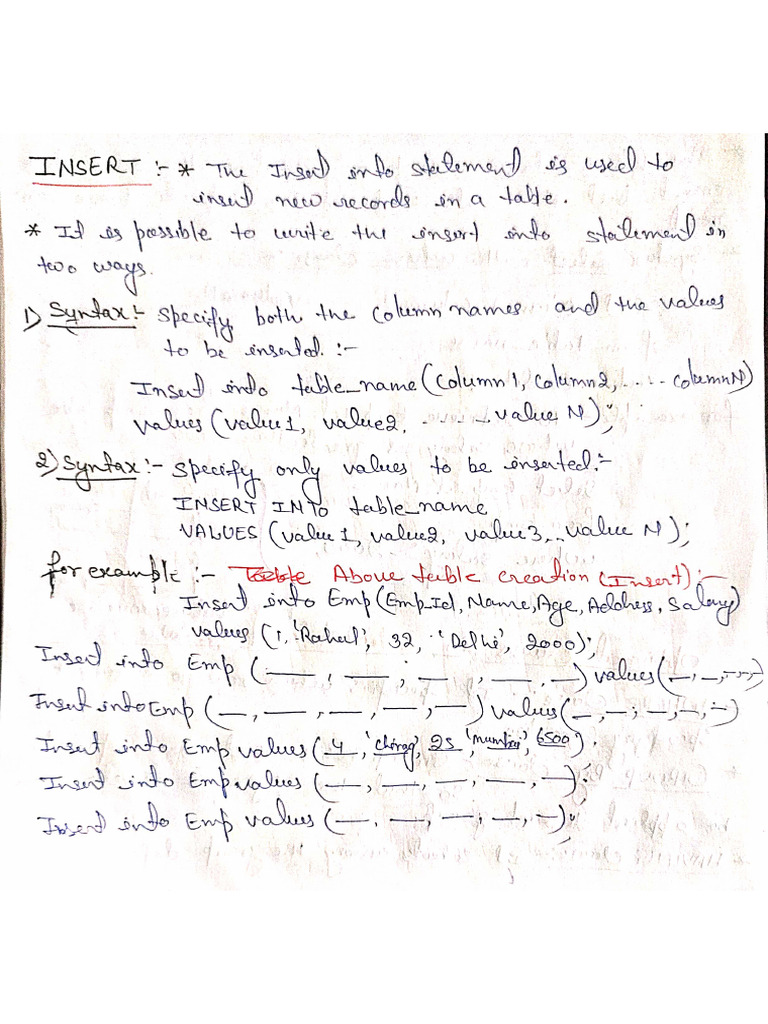 INSERT :- * The Insert into statement is used to
insert new records in a table.
* It is possible to write the insert into statement in
two ways.
1) Syntax:- Specify both the column names and the values
to be inserted. :-
Insert into table_name(column1, column2, ..... columnN)
values (value1, value2, ....... value N);
2) Syntax :- Specify only values to be inserted.:-
INSERT INTO table_name
VALUES (value1, value2, value3,...value N);
for example :- Table Above table creation (Insert) :-
Insert into Emp(Emp_Id, Name, Age, Address, Salary)
values (1, 'Rahul', 32, 'Delhi', 2000);
Insert into Emp (__, __, __, __, __) values(__, __, __, __, __)
Insert into Emp (__, __, __, __, __) values(__, __, __, __, __)
Insert into Emp values (4, 'chirag', 25, 'mumbai', 6500).
Insert into Emp values (__, __, __, __, __);
Insert into Emp values (__, __, __, __, __);